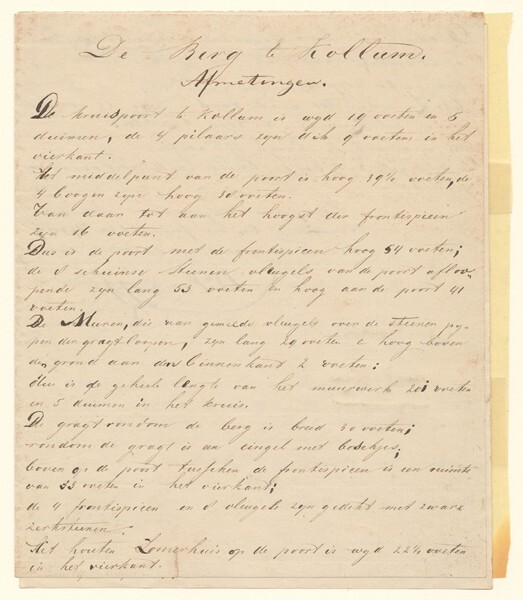 De Berg te Kollum.
Afmetingen.
De kruispoort te Kollum is wyd 19 voeten en 6
duimen, de 4 pilaars zyn dik 9 voeten in het
vierkant.
Het middelpunt van de poort is hoog 39½ voeten, de
4 boogen zyn hoog 30 voeten.
Van daar tot aan het hoogst der frontispicen
zyn 16 voeten.
Dus is de poort met de frontispicen hoog 54 voeten;
de 8 schuinse steenen vleugels van de poort afloo-
pende zyn lang 53 voeten en hoog aan de poort 41
voeten.
De Muren, die van gemelde vleugels over de steenen py-
pen der gragt loopen, zyn lang 20 voeten & hoog boven
den grond aan den binnenkant 2 voeten;
dus is de geheele lengte van het muurwerk 201 voeten
en 5 duimen in het kruis.
De gragt rondom de berg is breed 30 voeten;
rondom de gragt is een cingel met boschjes;
boven op de poort tusschen de frontispicen is een ruimte
van 33 voeten in het vierkant;
de 4 frontispicen en 8 vleugels zyn gedekt met zware
zerksteenen.
Het houten Zomerhuis op de poort is wyd 22½ voeten
in het vierkant.